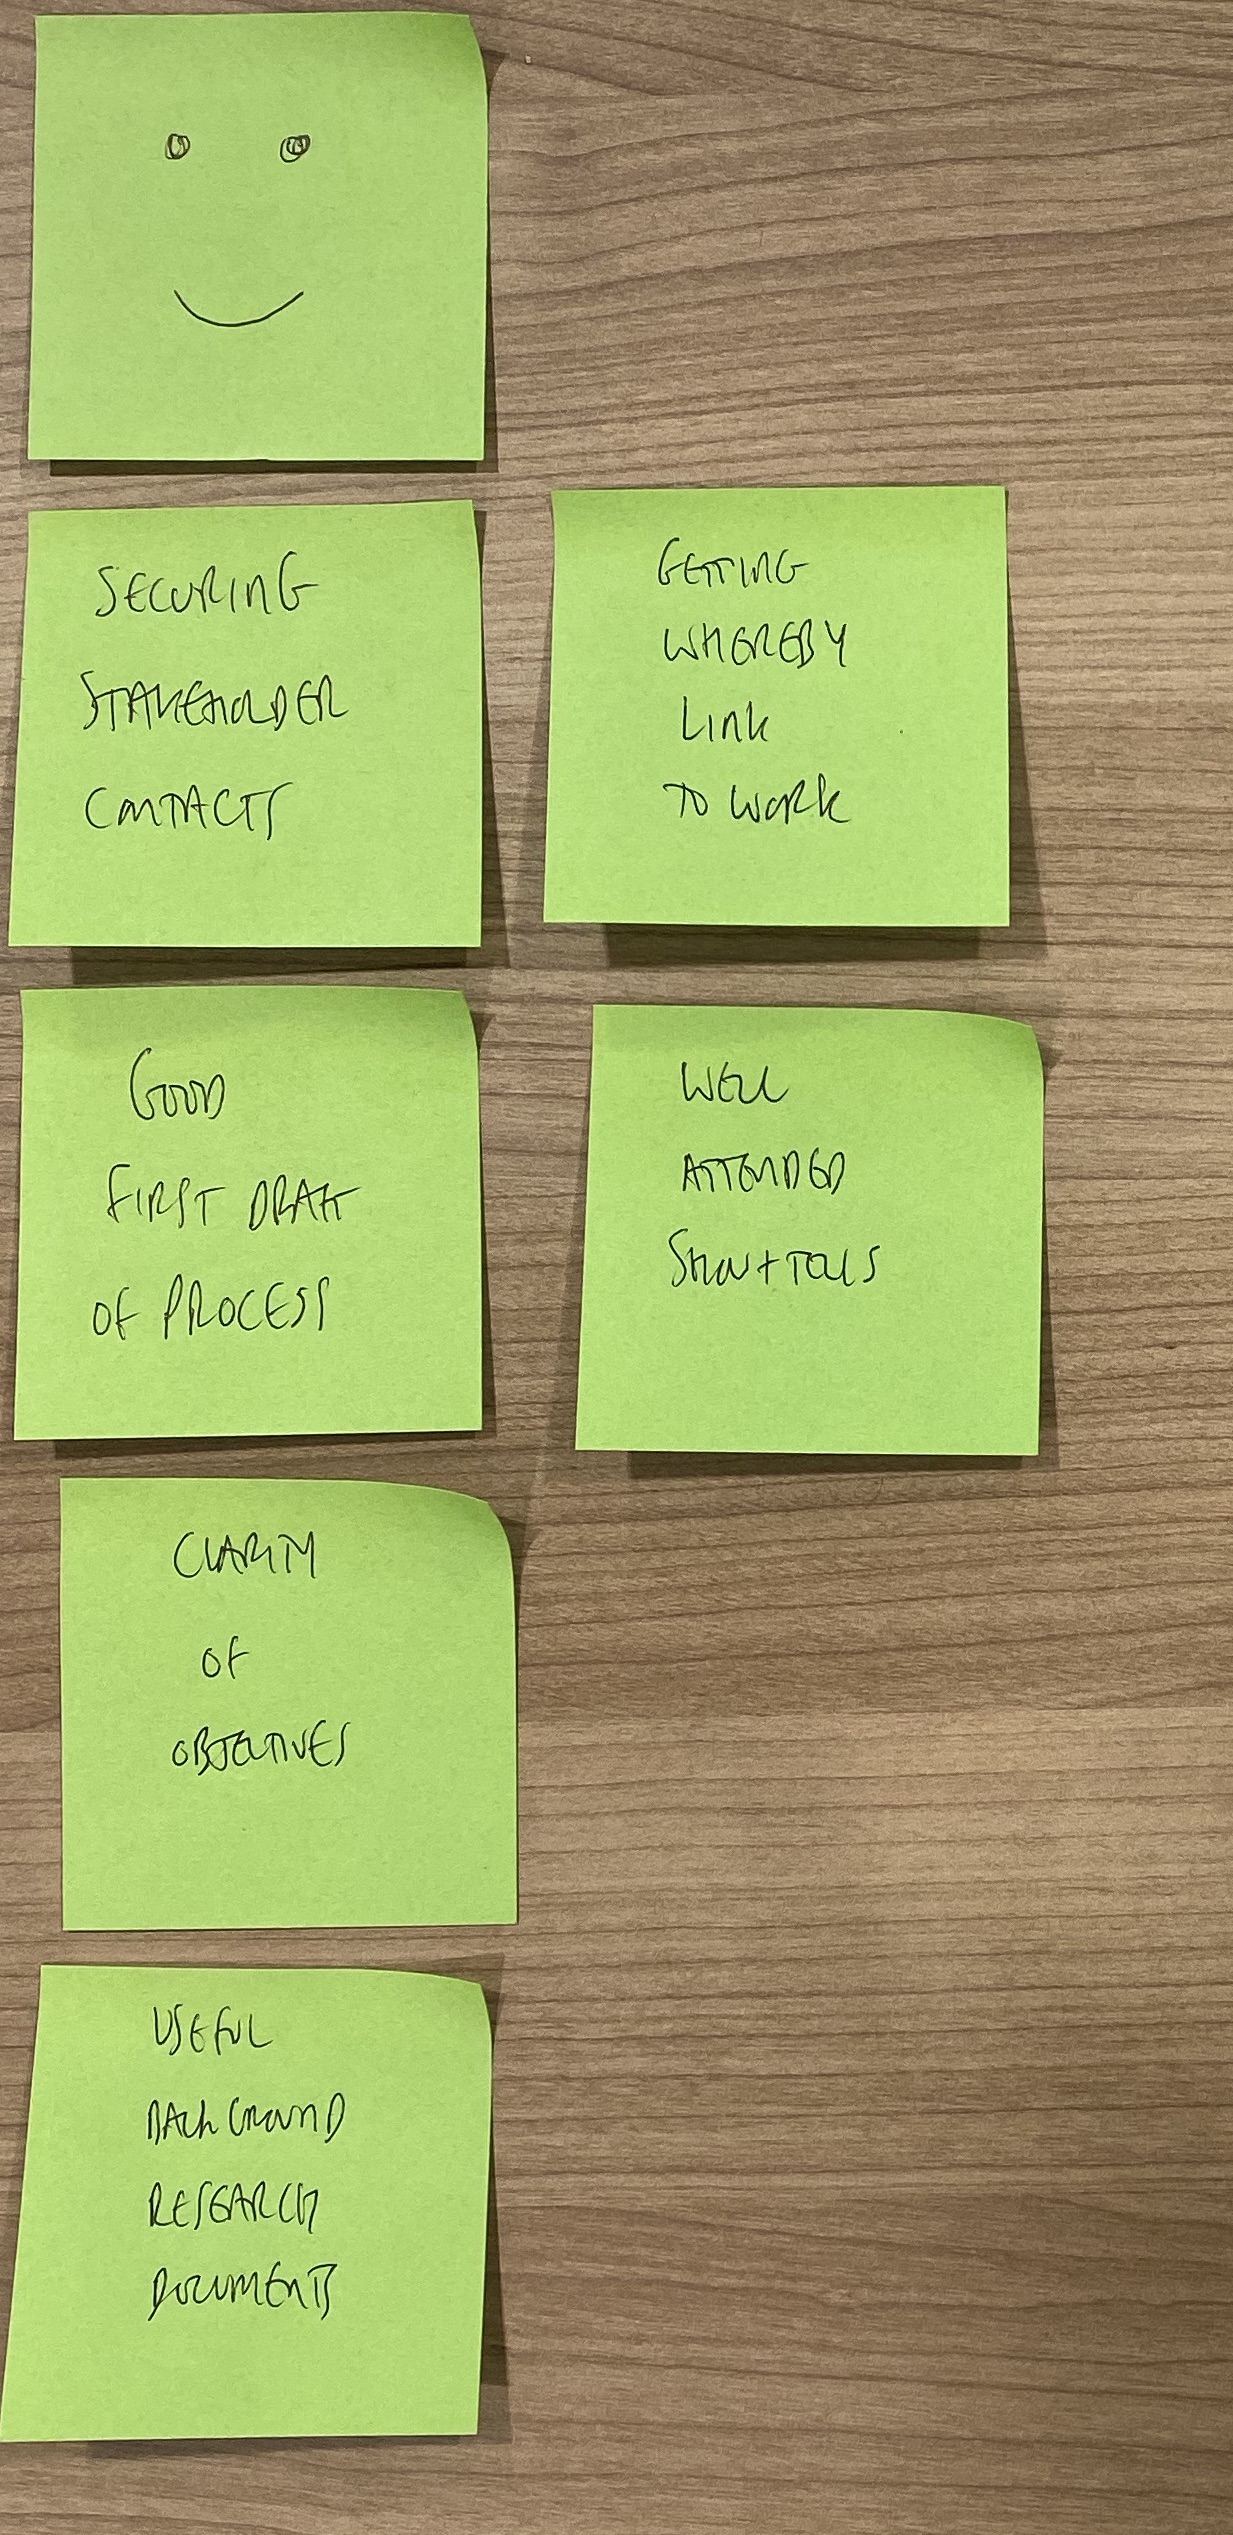 SECURING
STAKEHOLDER
CONTACTS
GETTING
WHEREBY
LINK
TO WORK
GOOD
FIRST DRAFT
OF PROCESS
WELL
ATTENDED
SHOW + TELLS
CLARITY
OF
OBJECTIVES
USEFUL
BACKGROUND
RESEARCH
DOCUMENTS